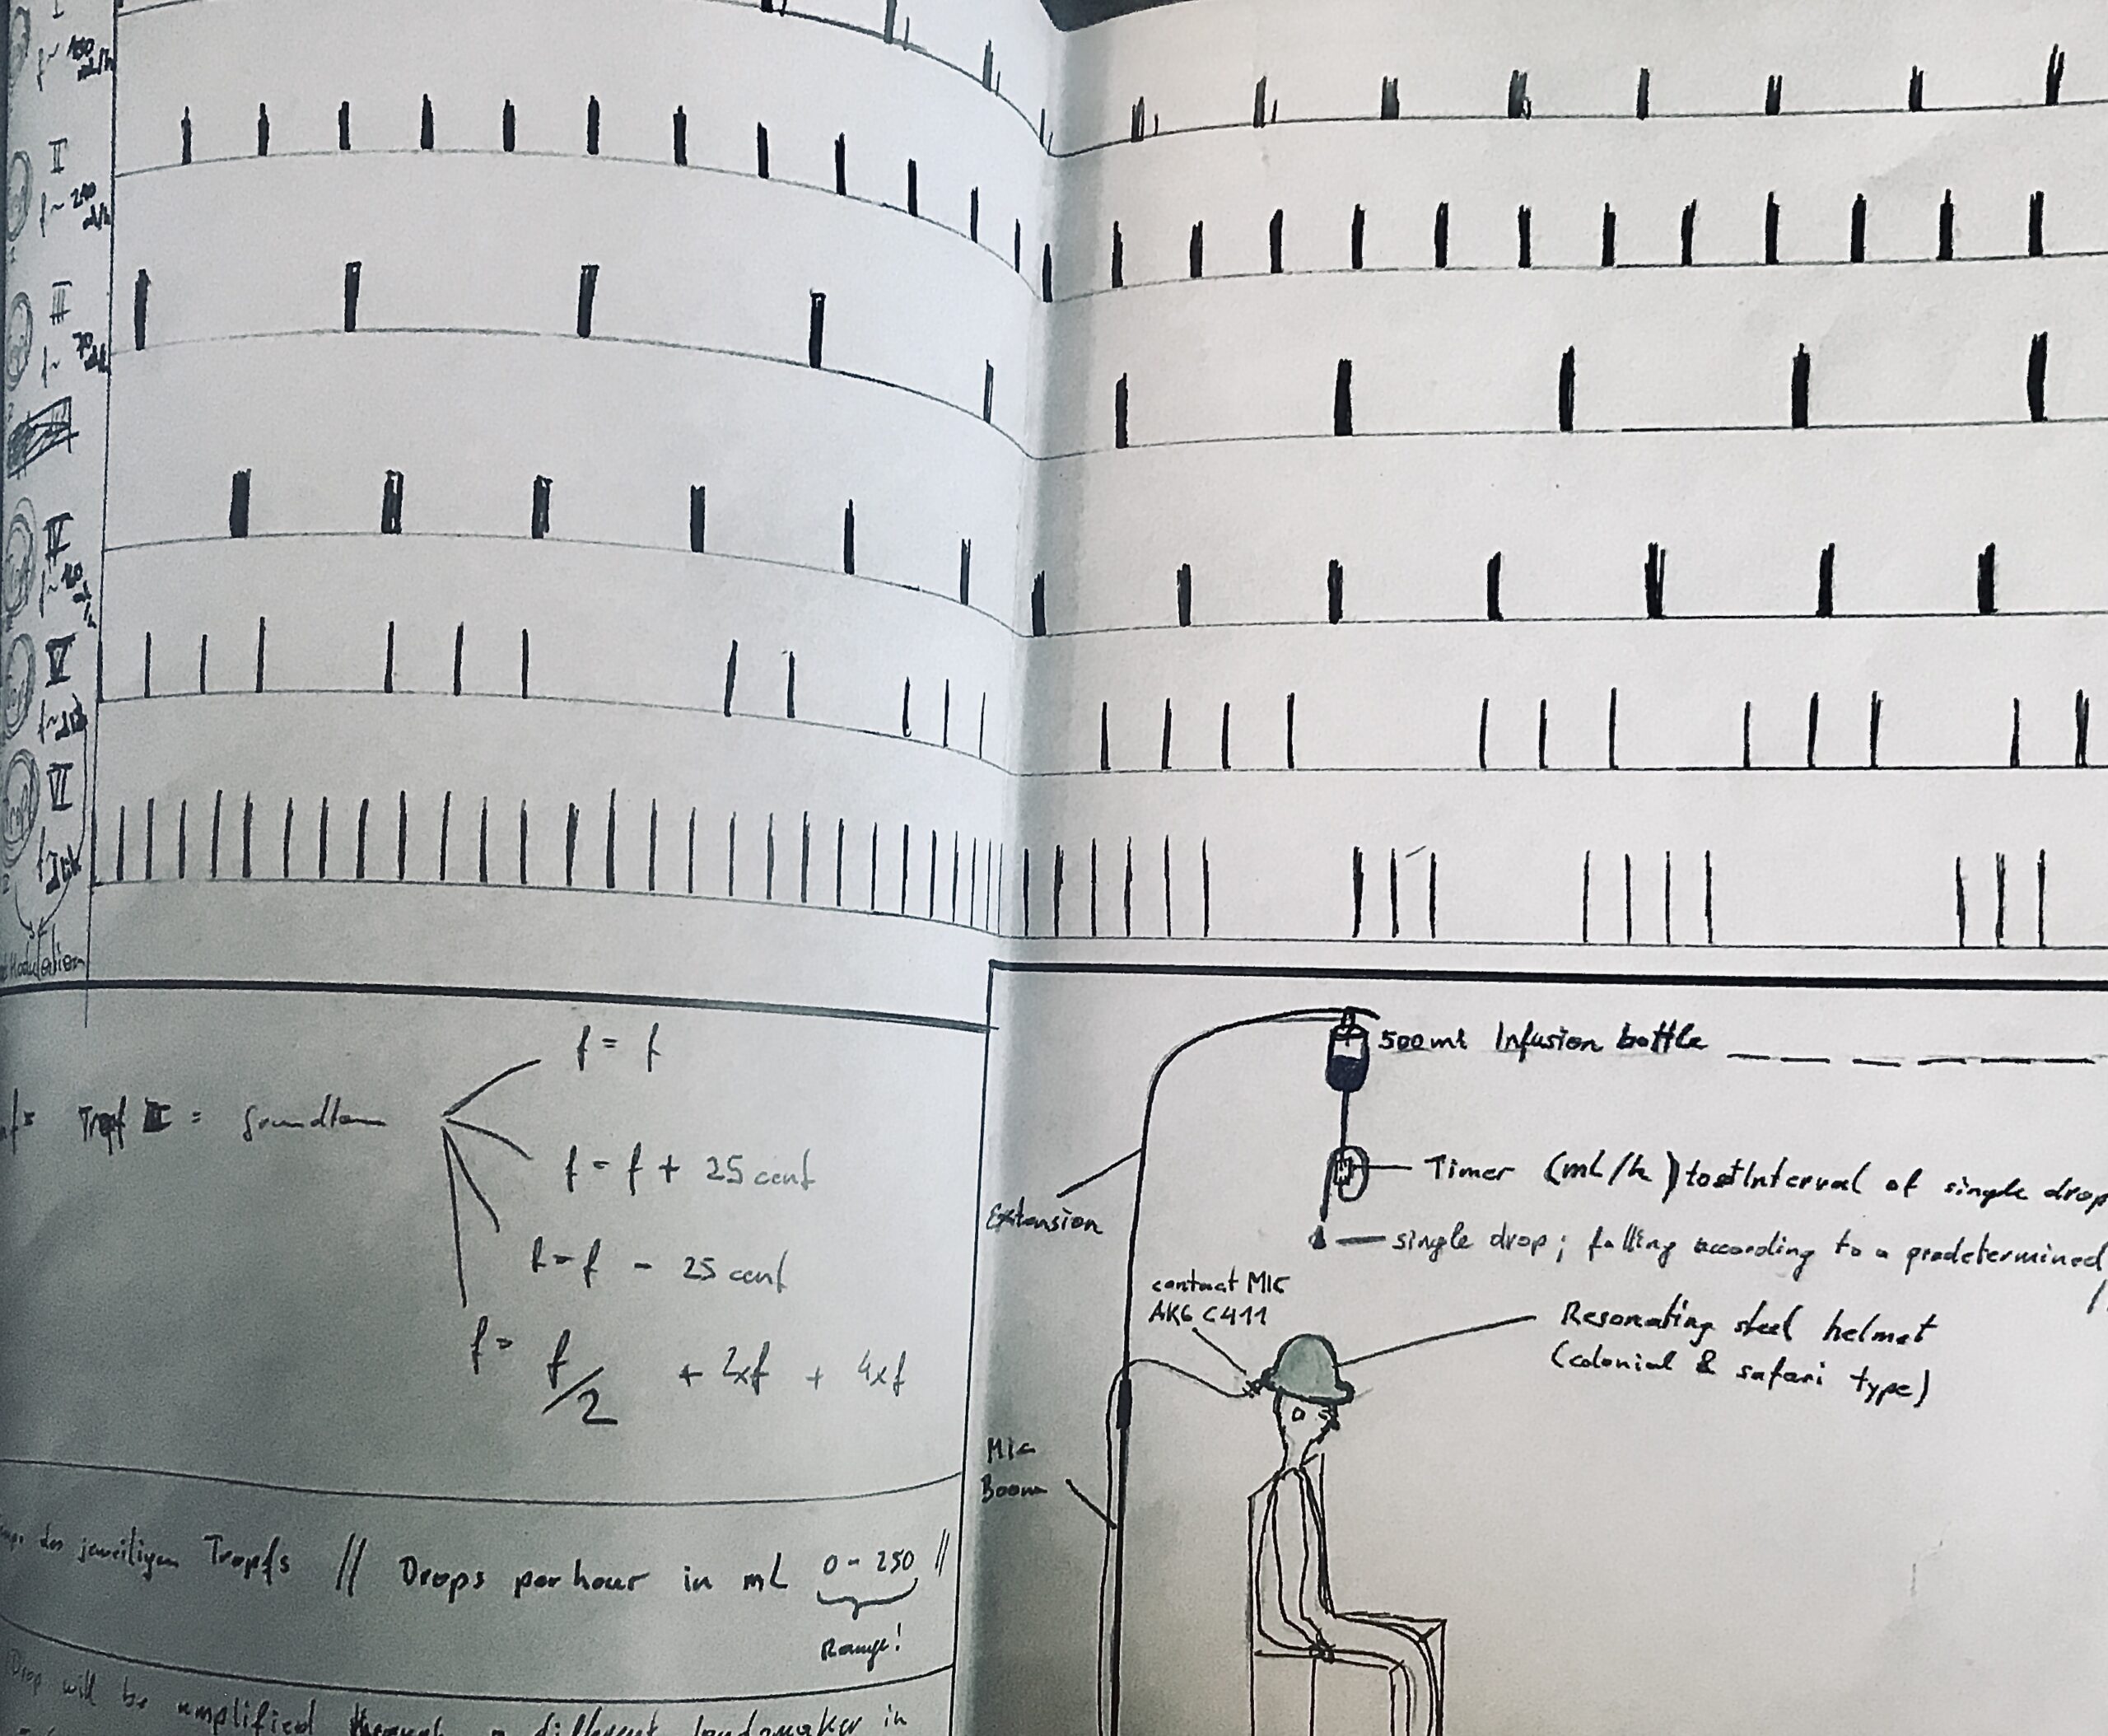 I
f ~
II
f ~
ml/h
III
f ~ 70
IV
f ~
V
f ~
VI
Modulation
f = f
Tropf = Grundton
f = f + 25 cent
f = f - 25 cent
f = f/2 + 2xf + 4xf
des jeweiligen Tropfs // Drops per hour in mL 0 - 250 //
Range!
Drop will be amplified through a different loudspeaker in
500ml Infusion bottle
Timer (mL/h) Interval of single drop
Extension
single drop; falling according to a predetermined
contact MIC
AKG C411
Resonating steel helmet
(colonial & safari type)
Mic
Boom